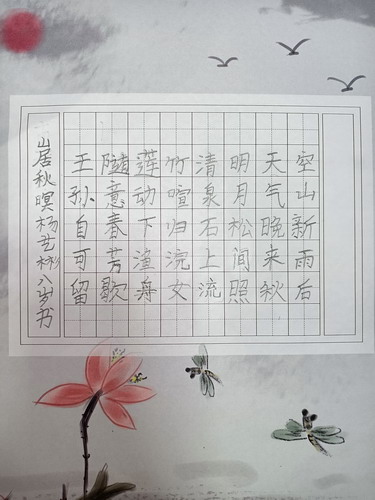 空山新雨后
天气晚来秋
明月松间照
清泉石上流
竹喧归浣女
莲动下渔舟
随意春芳歇
王孙自可留
山居秋暝杨艺彬八岁书